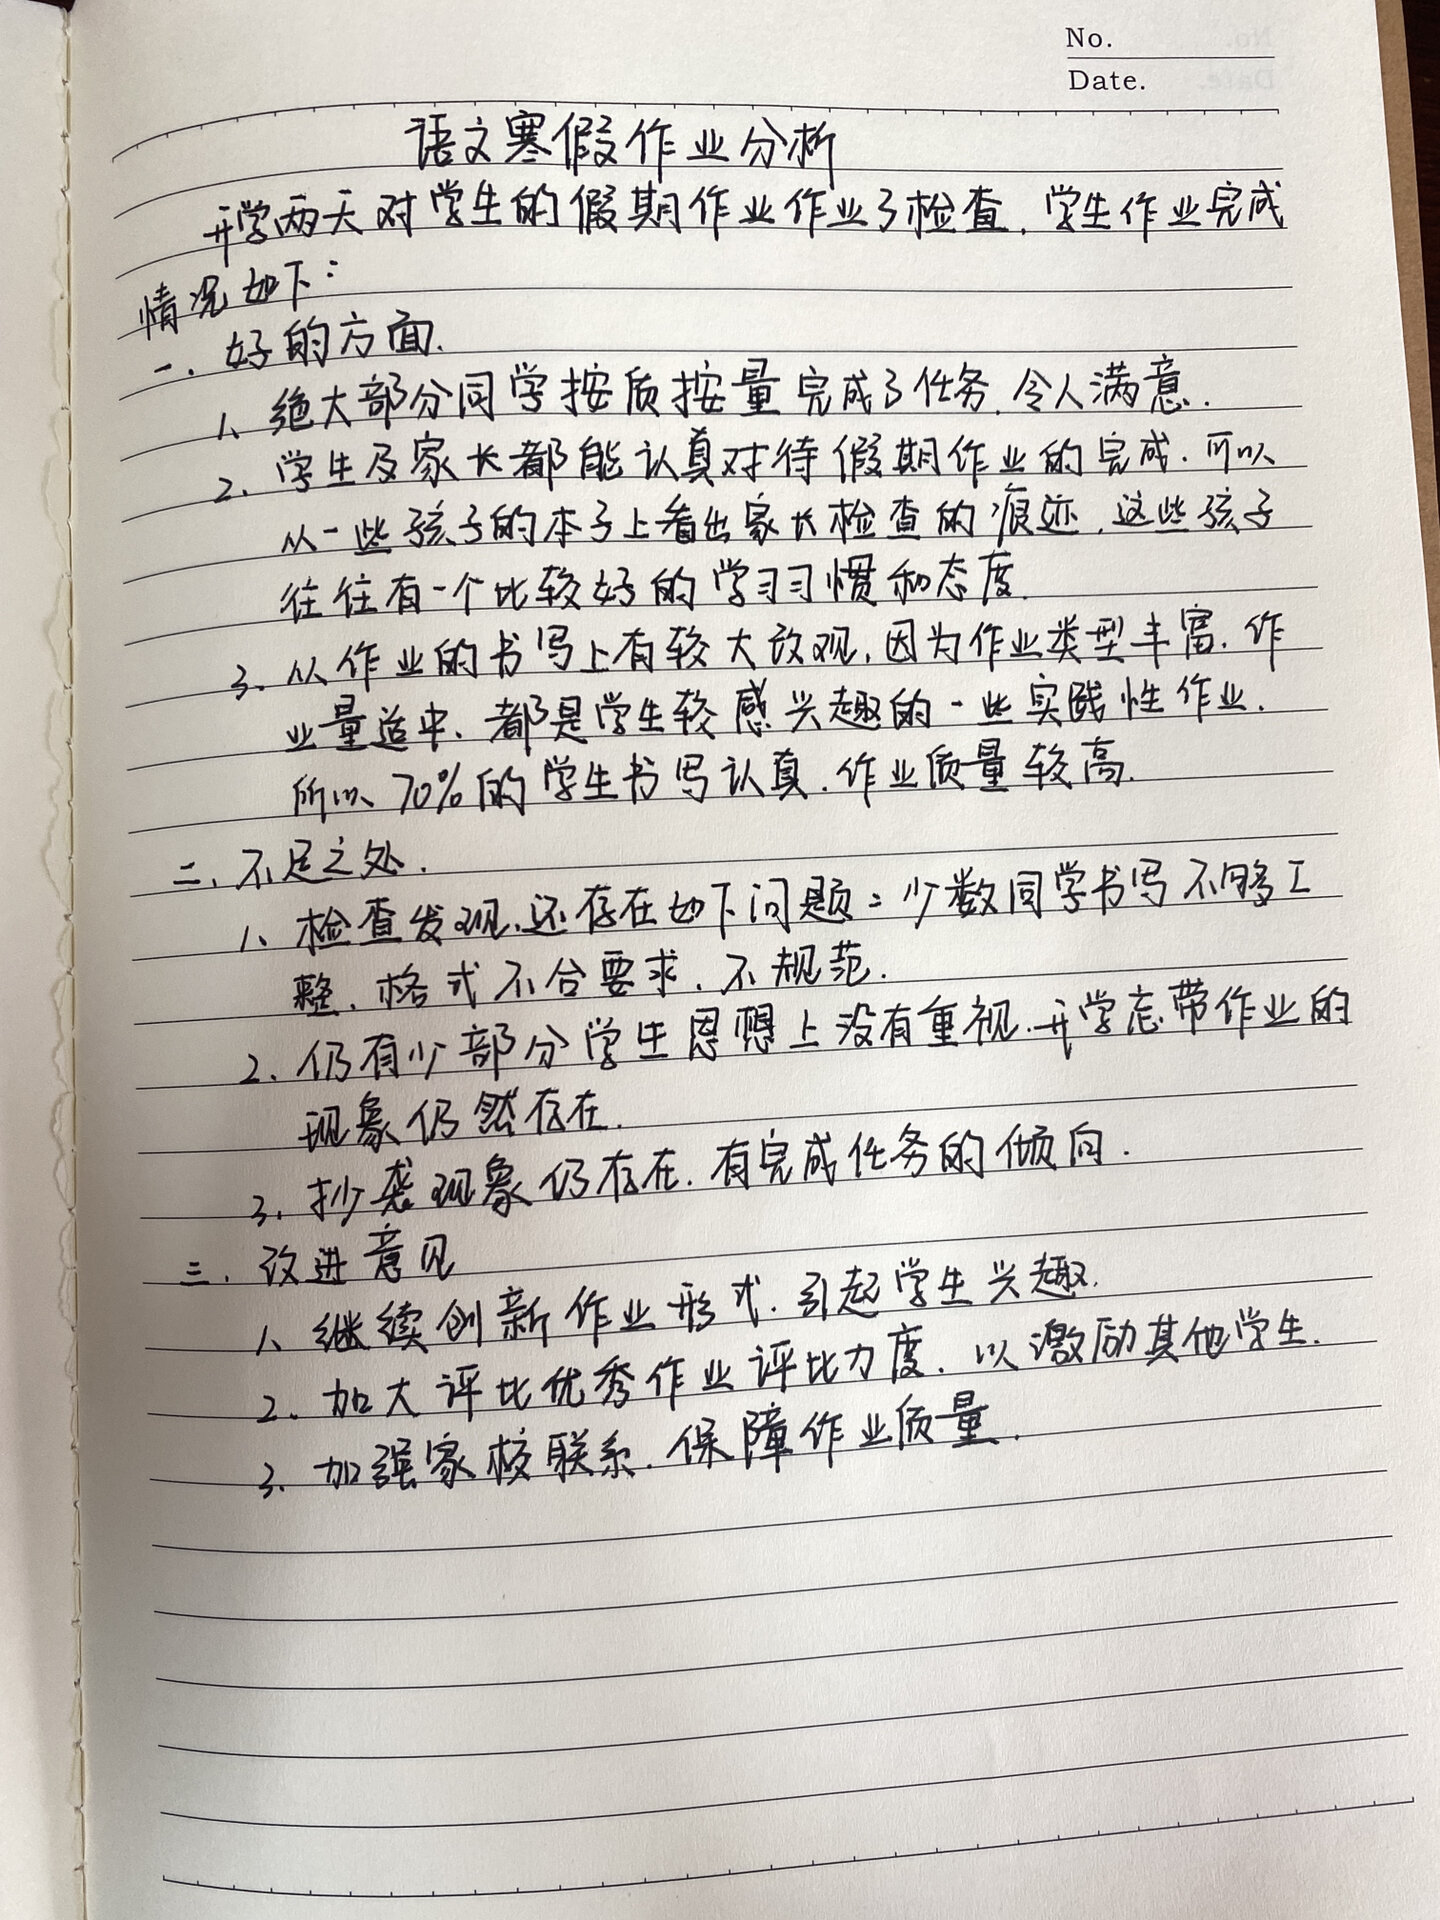 No.
Date.
语文寒假作业分析
开学两天对学生的假期作业作业了检查.学生作业完成
情况如下:
一.好的方面.
1、绝大部分同学按质按量完成了任务.令人满意.
2、学生及家长都能认真对待假期作业的完成.所以
从一些孩子的本子上看出家长检查的痕迹.这些孩子
往往有一个比较好的学习习惯和态度.
3、从作业的书写上有较大改观.因为作业类型丰富.作
业量适中、都是学生较感兴趣的一些实践性作业.
所以70%的学生书写认真.作业质量较高.
二、不足之处.
1、检查发现.还存在如下问题:少数同学书写不够工
整.格式不合要求.不规范.
2、仍有少部分学生思想上没有重视.开学忘带作业的
现象仍然存在.
3、抄袭现象仍存在.有完成任务的倾向.
三.改进意见
1、继续创新作业形式.引起学生兴趣.
2、加大评比优秀作业评比力度.以激励其他学生.
3、加强家校联系.保障作业质量.